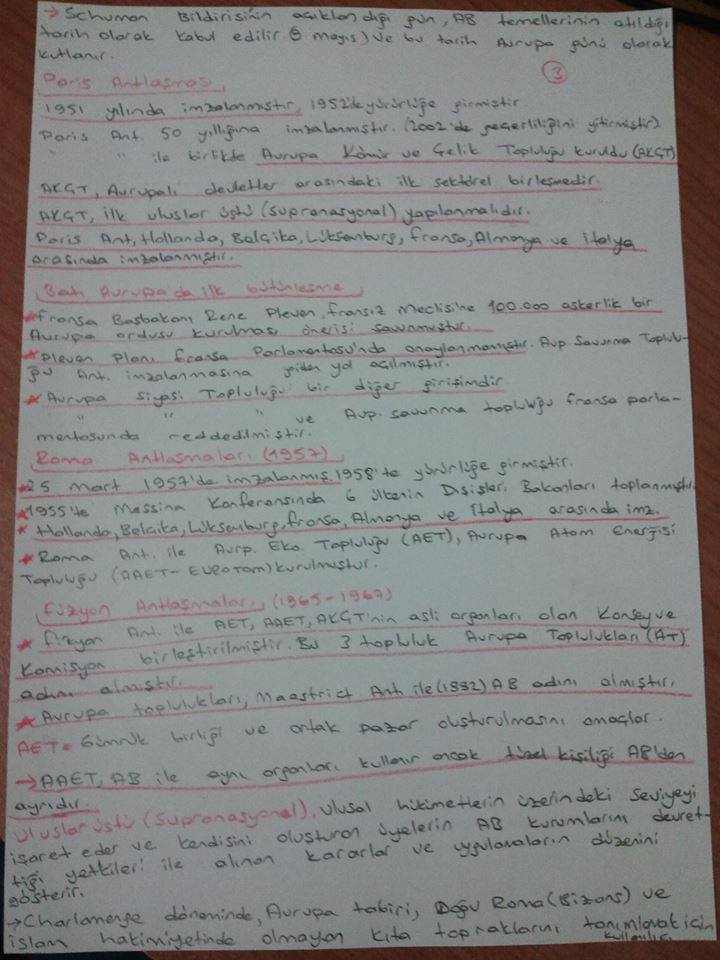 → Schuman Bildirisi'nin açıklandığı gün, AB temellerinin atıldığı
tarih olarak kabul edilir (9 mayıs) ve bu tarih Avrupa günü olarak
kutlanır.
3
Paris Antlaşması
1951 yılında imzalanmıştır, 1952'de yürürlüğe girmiştir
Paris Ant. 50 yıllığına imzalanmıştır. (2002'de geçerliliğini yitirmiştir)
" " ile birlikte Avrupa Kömür ve Çelik Topluluğu kuruldu (AKÇT)
AKÇT, Avrupalı devletler arasındaki ilk sektörel birleşmedir.
AKÇT, ilk uluslar üstü (supranasyonal) yapılanmalıdır.
Paris Ant, Hollanda, Belçika, Lüksenburg, Fransa, Almanya ve İtalya
arasında imzalanmıştır.
Batı Avrupa'da ilk bütünleşme
* Fransa Başbakanı Rene Pleven, fransız Meclisi'ne 100.000 askerlik bir
Avrupa ordusu kurulması önerisi savunmuştur.
* Pleven Planı Fransa Parlamentosu'nda onaylanmamıştır. Avp. Savunma Toplulu-
ğu Ant. imzalanmasına giden yol açılmıştır.
* Avrupa siyasi Topluluğu bir diğer girişimdir.
" " " ve Avp. savunma topluluğu fransa parla-
mentosunda reddedilmiştir.
Roma Antlaşmaları (1957)
* 25 Mart 1957'de imzalanmış 1958'te yürürlüğe girmiştir.
* 1955'te Messina Konferansında 6 ülkenin Dışişler. Bakanları toplanmıştır.
* Hollanda, Belçika, Lüksenburg, fransa, Almanya ve İtalya arasında imz.
* Roma Ant. ile Avrp. Eko. Topluluğu (AET), Avrupa Atom Enerjisi
Topluluğu (AAET- EUROTOM) kurulmuştur.
füzyon Antlaşmaları, (1965-1967)
* füzyon Ant. ile AET, AAET, AKÇT'nin asli organları olan Konsey ve
Komisyon birleştirilmiştir. Bu 3 topluluk Avrupa Toplulukları (AT)
adını almıştır.
* Avrupa toplulukları, Maastrict Ant. ile (1992) AB adını almıştır.
AET = Gümrük birliği ve ortak pazar oluşturulmasını amaçlar.
→ AAET, AB ile aynı organları kullanır ancak tüzel kişiliği AB'den
ayrıdır.
Uluslar üstü (Supranasyonel), ulusal hükümetlerin üzerindeki seviyeyi
işaret eder ve kendisini oluşturan üyelerin AB kurumlarını devret-
tiği yetkileri ile alınan kararlar ve uygulamaların düzenini
gösterir.
→ Charlamenge döneminde, Avrupa tabiri, Doğu Roma (Bizans) ve
islam hakimiyetinde olmayan kıta topraklarını tanımlamak için